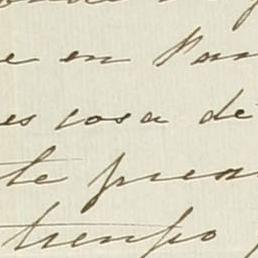 e en Par
es cosa de
te prea
tiempo